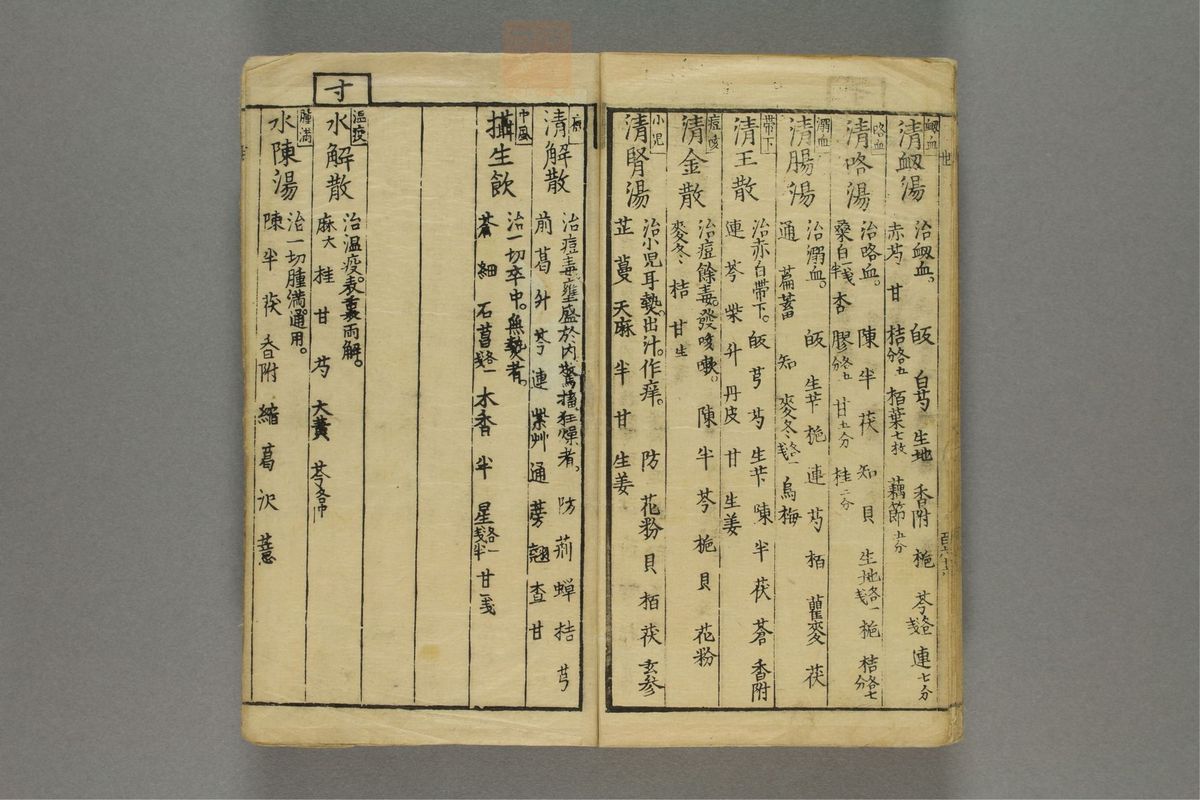 衂血
清衂湯
治衂血。 皈 白芍 生地 香附 梔 芩各一戔 連七分
赤芍 甘 桔各五分 栢葉七枚 藕節五分
咯血
清咯湯
治咯血。 陳 半 茯 知 貝 生地各一戔 梔 桔各七分
桑白一戔半 杏 膠各五分 甘五分 桂二分
溺血
清腸湯
治溺血。 皈 生芐 梔 連 芍 栢 瞿麥 茯
通 萹蓄 知 麥冬各一戔 烏梅
帶下
清王散
治赤白帶下。 皈 芎 芍 生芐 陳 半 茯 蒼 香附
連 芩 柴 升 丹皮 甘 生姜
痘咳
清金散
治痘餘毒。發咳嗽。 陳 半 芩 梔 貝 花粉
麥冬 桔 甘生
小児
清腎湯
治小児耳𤍠。出汁。作痒。 防 花粉 貝 栢 茯 玄参
芷 蔓 天麻 半 甘 生姜
清解散
治痘毒壅盛於内驚搐狂燥者。 防 荊 蝉 桔 芎
前 葛 升 芩 連 紫艸 通 蒡 翹 查 甘
中風
攝生飲
治一切卒中。無𤍠者。
蒼 細 石菖各一戔 木香 半 星各一戔半 甘一戔
寸
溫疫
水解散
治溫疫。表裏兩解。
麻大 桂 甘 芍 大黄 芩各中
腫満
水陳湯
治一切腫満。通用。
陳 半 茯 香附 縮 葛 沢 薏